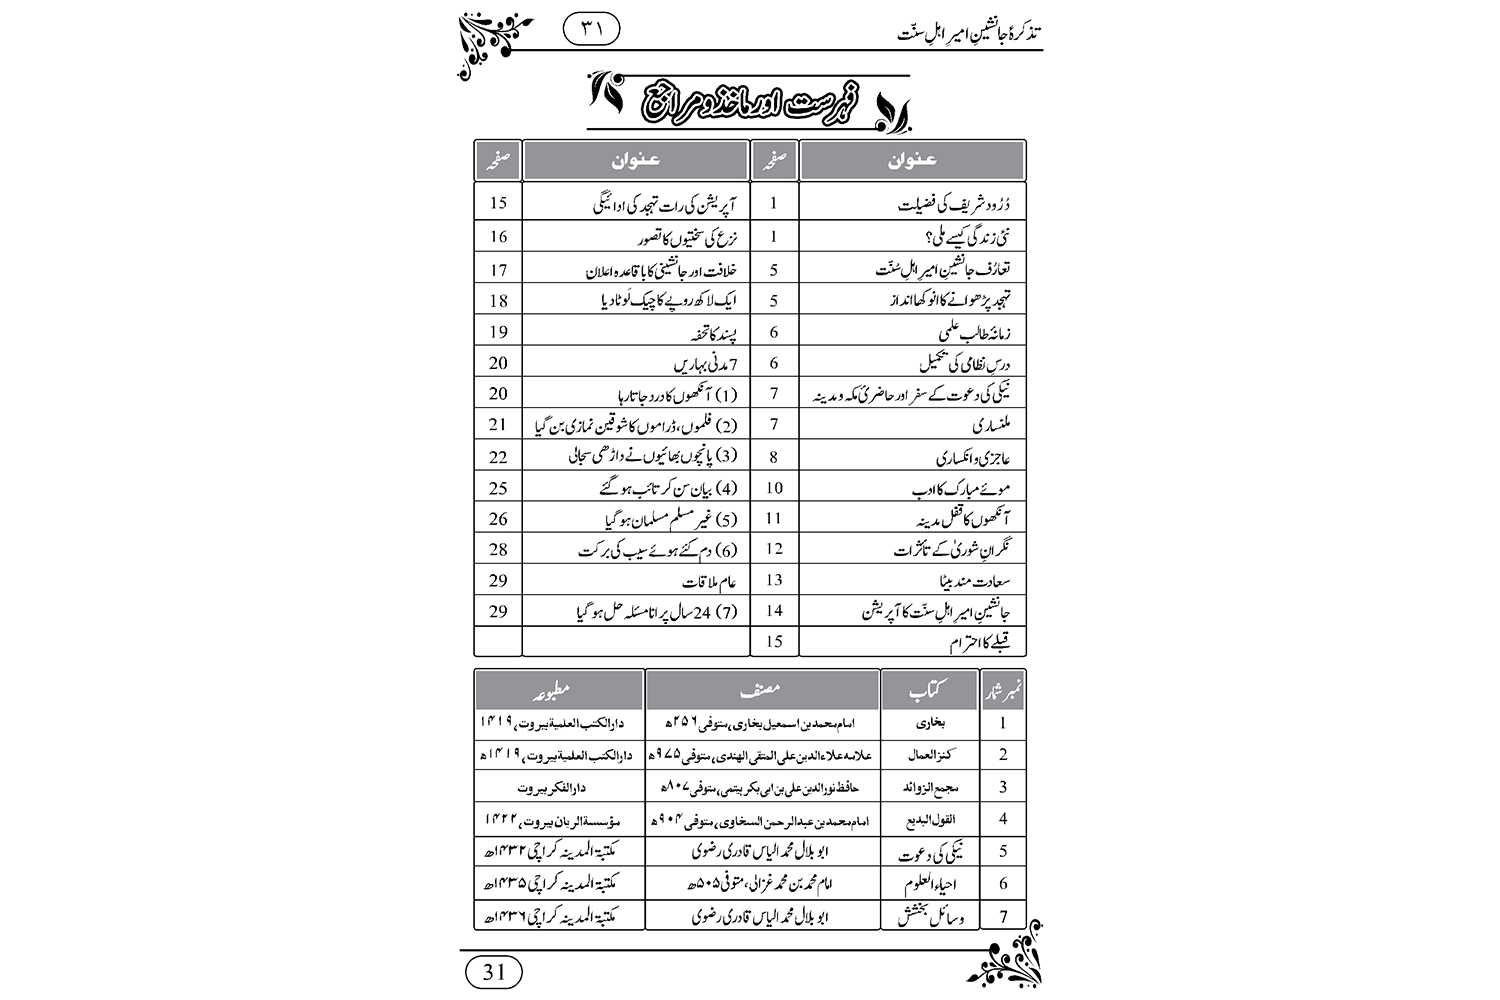 تذکرۂ جانشینِ امیرِ اہلِ سنّت ۳۱
فہرست اور ماخذ و مراجع
عنوان صفحہ عنوان صفحہ
دُرُود شریف کی فضیلت 1 آپریشن کی رات تہجد کی ادائیگی 15
نئی زندگی کیسے ملی؟ 1 نزع کی سختیوں کا تصور 16
تعارُف جانشینِ امیرِ اہلِ سُنّت 5 خلافت اور جانشینی کا باقاعدہ اعلان 17
تہجد پڑھوانے کا انوکھا انداز 5 ایک لاکھ روپے کا چیک لَوٹا دیا 18
زمانۂ طالب علمی 6 پسند کا تحفہ 19
درسِ نظامی کی تکمیل 6 7 مدنی بہاریں 20
نیکی کی دعوت کے سفر اور حاضریٔ مکہ و مدینہ 7 (1) آنکھوں کا درد جاتا رہا 20
ملنساری 7 (2) فلموں، ڈراموں کا شوقین نمازی بن گیا 21
عاجزی و انکساری 8 (3) پانچوں بھائیوں نے داڑھی سجالی 22
موئے مبارک کا ادب 10 (4) بیان سن کر تائب ہو گئے 25
آنکھوں کا قفل مدینہ 11 (5) غیر مسلم مسلمان ہو گیا 26
نگرانِ شوریٰ کے تأثرات 12 (6) دم کئے ہوئے سیب کی برکت 28
سعادت مند بیٹا 13 عام ملاقات 29
جانشینِ امیرِ اہلِ سنّت کا آپریشن 14 (7) 24 سال پرانا مسئلہ حل ہو گیا 29
قبلے کا احترام 15
نمبر شمار کتاب مصنف مطبوعہ
1 بخاری امام محمد بن اسمعیل بخاری، متوفی ۲۵۶ھ دارالکتب العلمیة بیروت، ۱۴۱۹
2 کنز العمال علامہ علاء الدین علی المتقی الهندی، متوفی ۹۷۵ھ دارالکتب العلمیة بیروت، ۱۴۱۹ھ
3 مجمع الزوائد حافظ نور الدین علی بن ابی بکر ہیتمی، متوفی ۸۰۷ھ دارالفکر بیروت
4 القول البدیع امام محمد بن عبد الرحمن السخاوی، متوفی ۹۰۴ھ مؤسسة الریان بیروت، ۱۴۲۲
5 نیکی کی دعوت ابو بلال محمد الیاس قادری رضوی مکتبۃ المدینہ کراچی ۱۴۳۲ھ
6 احیاء العلوم امام محمد بن محمد غزالی، متوفی ۵۰۵ھ مکتبۃ المدینہ کراچی ۱۴۳۵ھ
7 وسائلِ بخشش ابو بلال محمد الیاس قادری رضوی مکتبۃ المدینہ کراچی ۱۴۳۶ھ
31